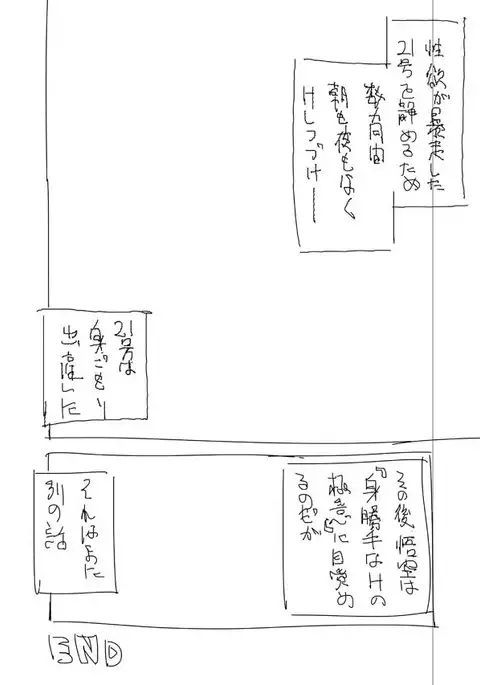 性欲が暴走した
21号を静めるため
数カ月間
朝も夜もなく
Hしつづけ――
21号は
身ごもり
出産した
その後悟空は
『身勝手なHの
極意』に目覚め
るのだが
それはまた
別の話
END